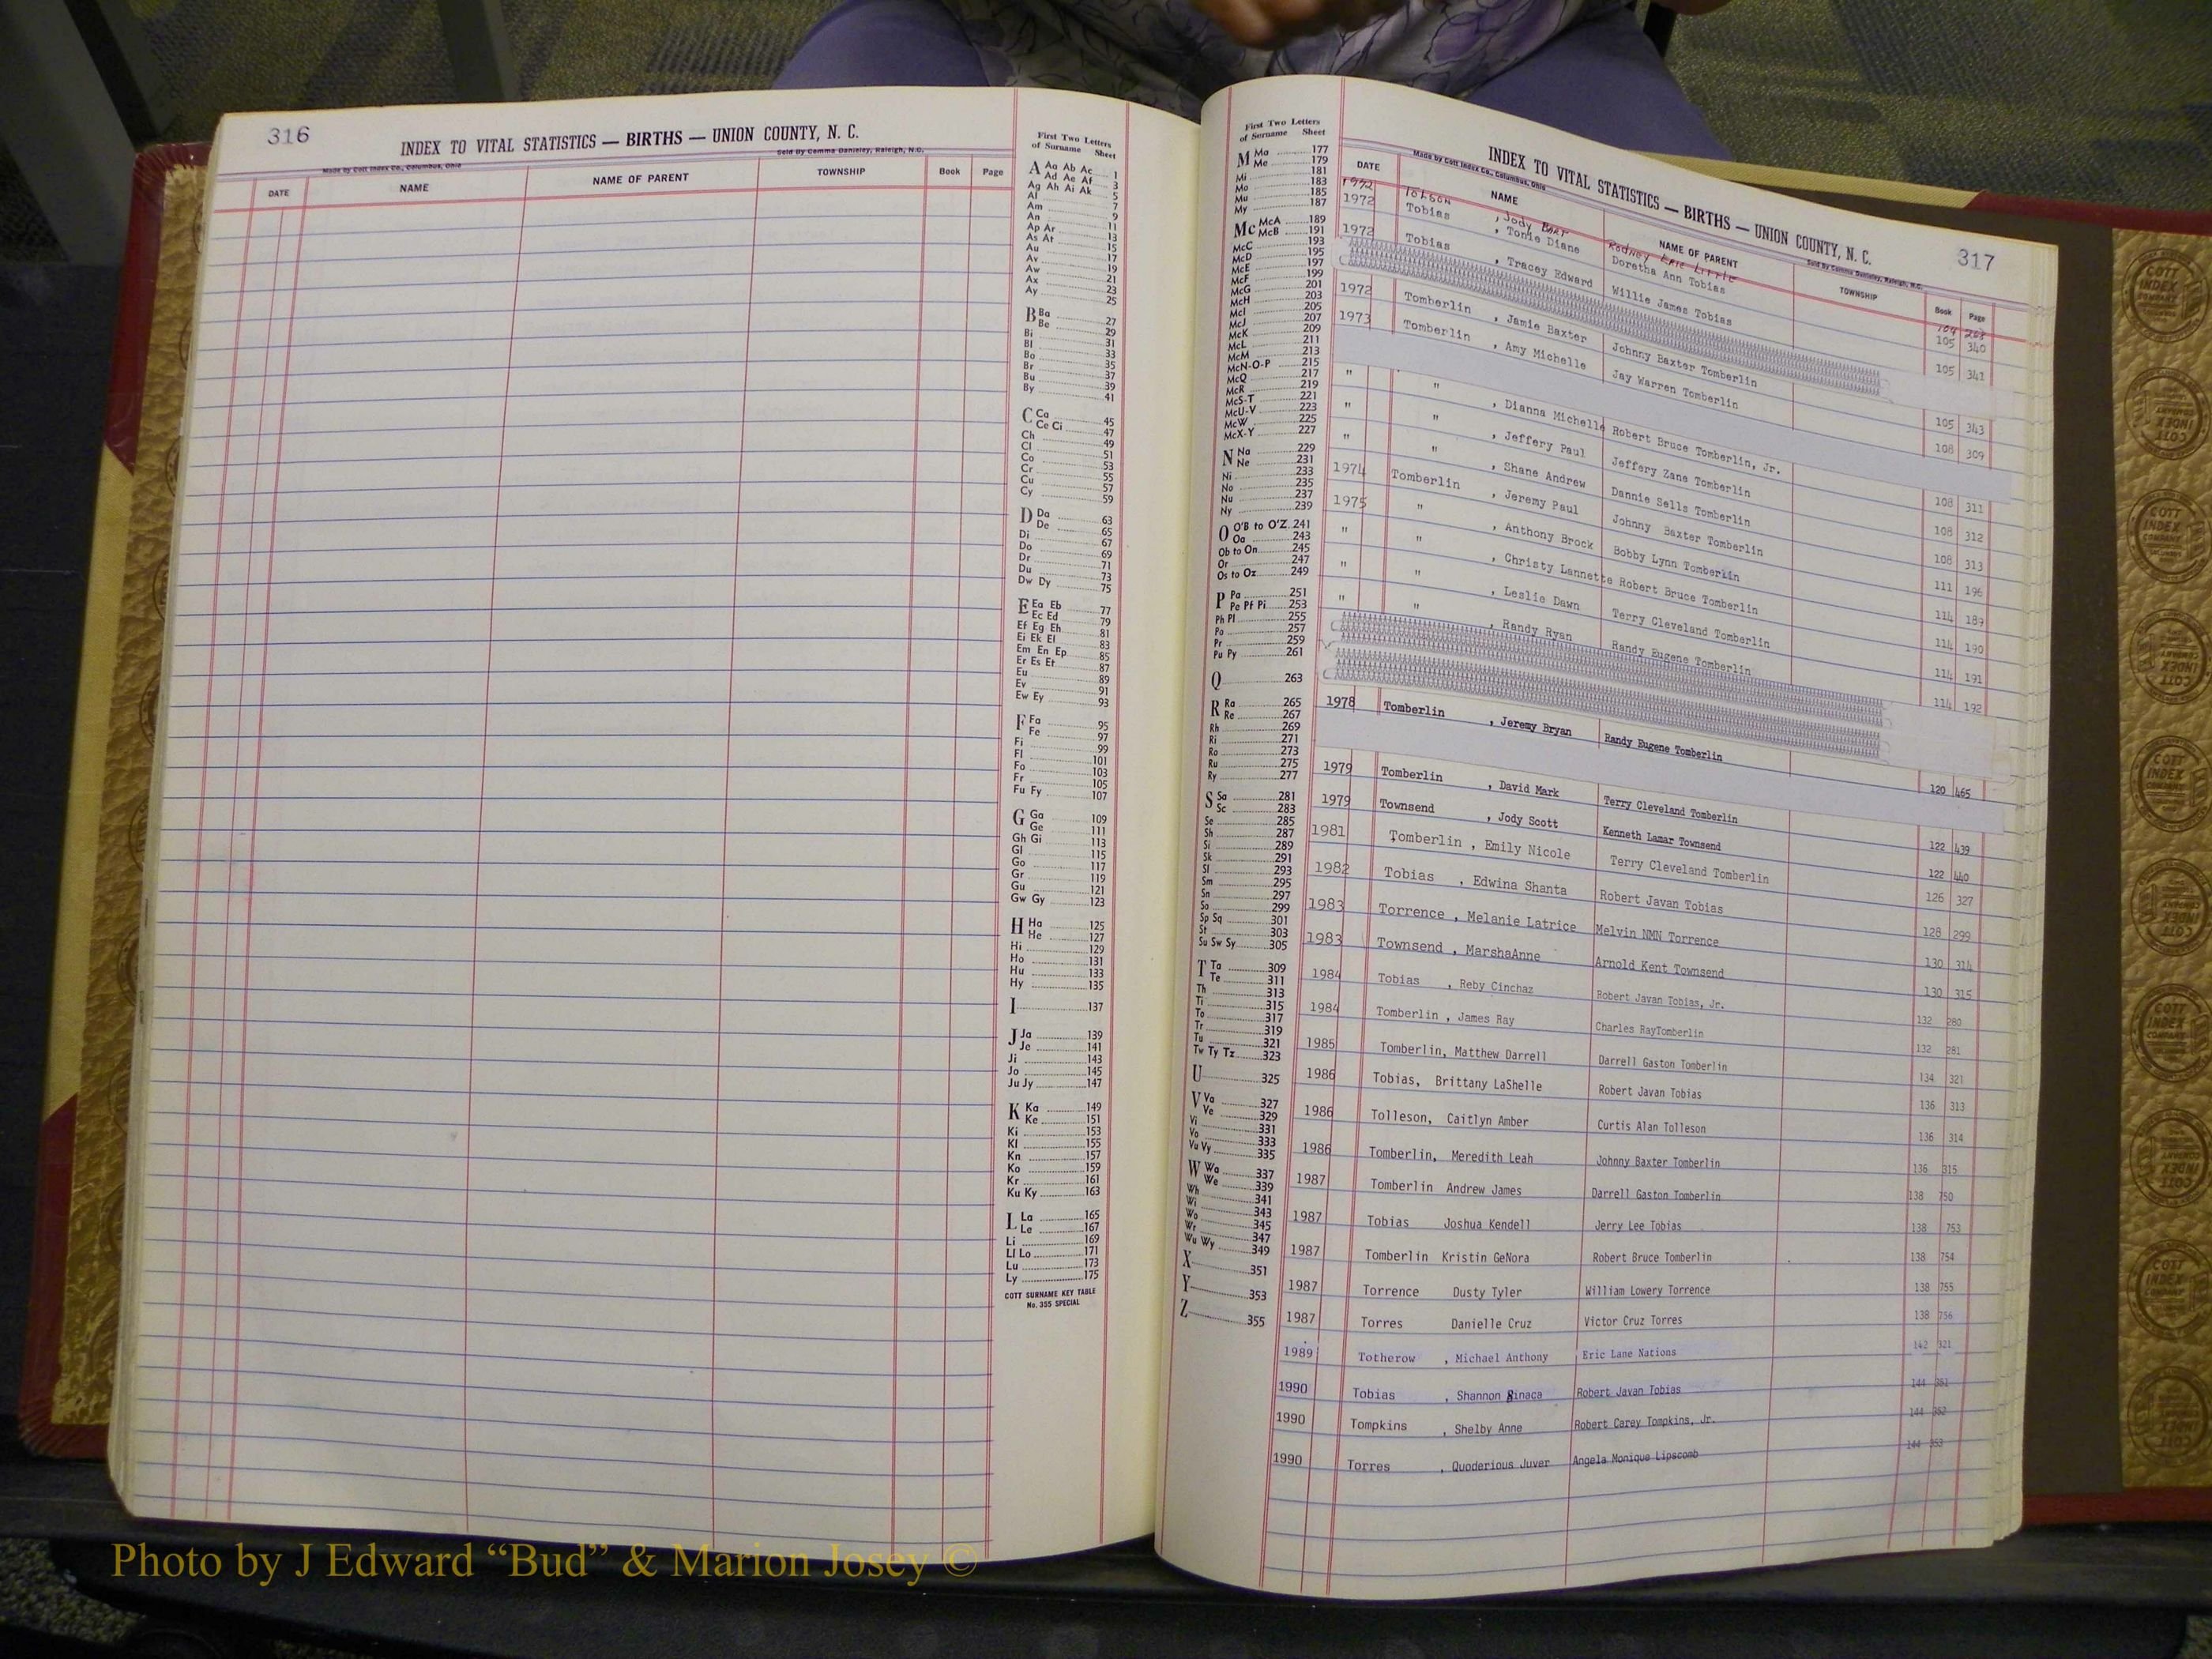 316
INDEX TO VITAL STATISTICS — BIRTHS — UNION COUNTY, N. C.
Made by Cott Index Co., Columbus, Ohio
Sold By Comma Danieley, Raleigh, N.C.
DATE NAME NAME OF PARENT TOWNSHIP Book Page
First Two Letters
of Surname Sheet
A Aa Ab Ac 1
Ad Ae Af 3
Ag Ah Ai Ak 5
Al 7
Am 9
An 11
Ap Ar 13
As At 15
Au 17
Av 19
Aw 21
Ax 23
Ay 25
B Ba 27
Be 29
Bi 31
Bl 33
Bo 35
Br 37
Bu 39
By 41
C Ca 45
Ce Ci 47
Ch 49
Cl 51
Co 53
Cr 55
Cu 57
Cy 59
D Da 63
De 65
Di 67
Do 69
Dr 71
Du 73
Dw Dy 75
E Ea Eb 77
Ec Ed 79
Ef Eg Eh 81
Ei Ek El 83
Em En Ep 85
Er Es Et 87
Eu 89
Ev 91
Ew Ey 93
F Fa 95
Fe 97
Fi 99
Fl 101
Fo 103
Fr 105
Fu Fy 107
G Ga 109
Ge 111
Gh Gi 113
Gl 115
Go 117
Gr 119
Gu 121
Gw Gy 123
H Ha 125
He 127
Hi 129
Ho 131
Hu 133
Hy 135
I 137
J Ja 139
Je 141
Ji 143
Jo 145
Ju Jy 147
K Ka 149
Ke 151
Ki 153
Kl 155
Kn 157
Ko 159
Kr 161
Ku Ky 163
L La 165
Le 167
Li 169
Ll Lo 171
Lu 173
Ly 175
COTT SURNAME KEY TABLE
No. 355 SPECIAL
First Two Letters
of Surname Sheet
M Ma 177
Me 179
Mi 181
Mo 183
Mu 185
My 187
Mc McA 189
McB 191
McC 193
McD 195
McE 197
McF 199
McG 201
McH 203
McI 205
McJ 207
McK 209
McL 211
McM 213
McN-O-P 215
McQ 217
McR 219
McS-T 221
McU-V 223
McW 225
McX-Y 227
N Na 229
Ne 231
Ni 233
No 235
Nu 237
Ny 239
O O'B to O'Z 241
Oa 243
Ob to On 245
Or 247
Os to Oz 249
P Pa 251
Pe Pf Pi 253
Ph Pl 255
Po 257
Pr 259
Pu Py 261
Q 263
R Ra 265
Re 267
Rh 269
Ri 271
Ro 273
Ru 275
Ry 277
S Sa 281
Sc 283
Se 285
Sh 287
Si 289
Sk 291
Sl 293
Sm 295
Sn 297
So 299
Sp Sq 301
St 303
Su Sw Sy 305
T Ta 309
Te 311
Th 313
Ti 315
To 317
Tr 319
Tu 321
Tw Ty Tz 323
U 325
V Va 327
Ve 329
Vi 331
Vo 333
Vu Vy 335
W Wa 337
We 339
Wh 341
Wi 343
Wo 345
Wr 347
Wu Wy 349
X 351
Y 353
Z 355
317
INDEX TO VITAL STATISTICS — BIRTHS — UNION COUNTY, N. C.
Made by Cott Index Co., Columbus, Ohio
Sold By Comma Danieley, Raleigh, N.C.
DATE NAME NAME OF PARENT TOWNSHIP Book Page
1972 Tolson , Jody Bart Rodney Eric Little 104 208
1972 Tobias , Tonie Diane Doretha Ann Tobias 105 340
1972 Tobias , Tracey Edward Willie James Tobias 105 341
1972 Tomberlin , Jamie Baxter Johnny Baxter Tomberlin 105 343
1973 Tomberlin , Amy Michelle Jay Warren Tomberlin 108 309
" " , Dianna Michelle Robert Bruce Tomberlin, Jr. 108 311
" " , Jeffery Paul Jeffery Zane Tomberlin 108 312
" " , Shane Andrew Dannie Sells Tomberlin 108 313
1974 Tomberlin , Jeremy Paul Johnny Baxter Tomberlin 111 196
1975 " , Anthony Brock Bobby Lynn Tomberlin 114 189
" " , Christy Lannette Robert Bruce Tomberlin 114 190
" " , Leslie Dawn Terry Cleveland Tomberlin 114 191
" " , Randy Ryan Randy Eugene Tomberlin 114 192
1978 Tomberlin , Jeremy Bryan Randy Eugene Tomberlin 120 465
1979 Tomberlin , David Mark Terry Cleveland Tomberlin 122 439
1979 Townsend , Jody Scott Kenneth Lamar Townsend 122 440
1981 Tomberlin , Emily Nicole Terry Cleveland Tomberlin 126 327
1982 Tobias , Edwina Shanta Robert Javan Tobias 128 299
1983 Torrence , Melanie Latrice Melvin NMN Torrence 130 314
1983 Townsend , MarshaAnne Arnold Kent Townsend 130 315
1984 Tobias , Reby Cinchaz Robert Javan Tobias, Jr. 132 280
1984 Tomberlin , James Ray Charles RayTomberlin 132 281
1985 Tomberlin, Matthew Darrell Darrell Gaston Tomberlin 134 321
1986 Tobias, Brittany LaShelle Robert Javan Tobias 136 313
1986 Tolleson, Caitlyn Amber Curtis Alan Tolleson 136 314
1986 Tomberlin, Meredith Leah Johnny Baxter Tomberlin 136 315
1987 Tomberlin Andrew James Darrell Gaston Tomberlin 138 750
1987 Tobias Joshua Kendell Jerry Lee Tobias 138 753
1987 Tomberlin Kristin GeNora Robert Bruce Tomberlin 138 754
1987 Torrence Dusty Tyler William Lowery Torrence 138 755
1987 Torres Danielle Cruz Victor Cruz Torres 138 756
1989 Totherow , Michael Anthony Eric Lane Nations 142 321
1990 Tobias , Shannon Robert Javan Tobias 144 351
1990 Tompkins , Shelby Anne Robert Carey Tompkins, Jr. 144 352
1990 Torres , Quoderious Juver Angela Monique Lipscomb 144 353
Photo by J Edward “Bud” & Marion Josey ©